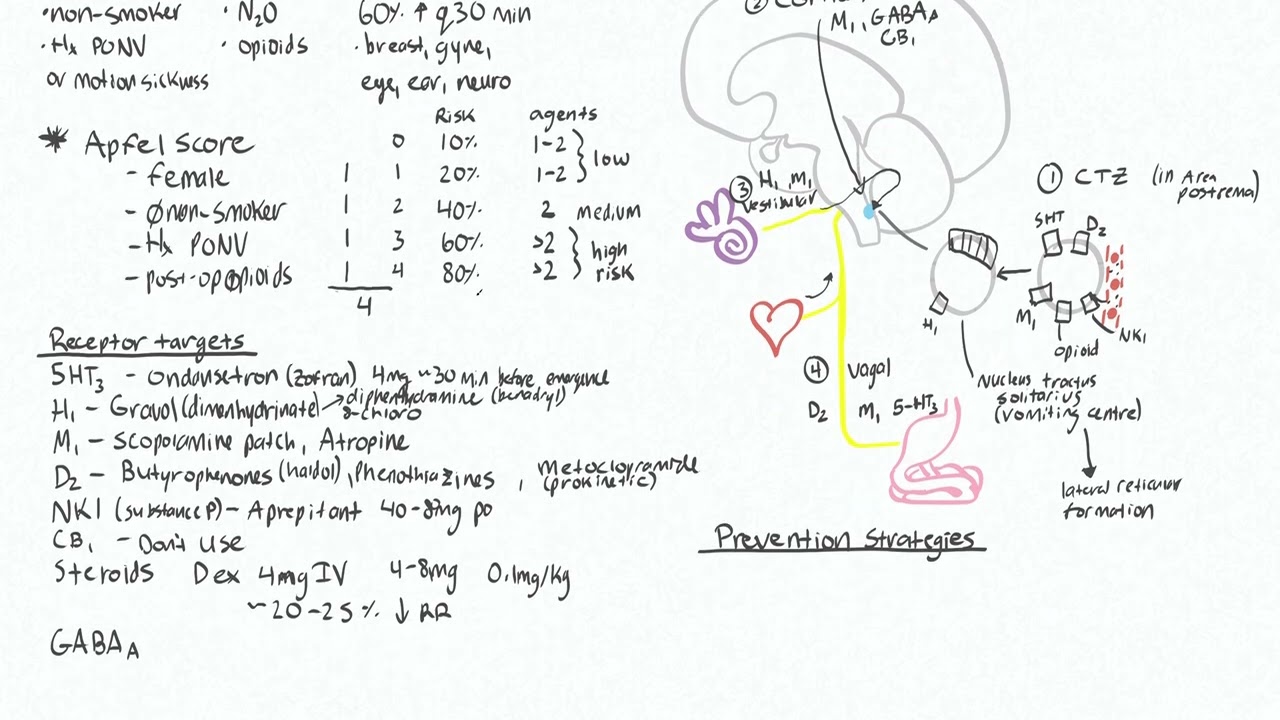 ·non-smoker · N₂O 60% ↑ q30 min
·Hx PONV · opioids · breast, gyne,
or motion sickness eye, ear, neuro
Risk agents
* Apfel Score 0 10% 1-2
low
- female 1 1 20% 1-2
- Ønon-smoker 1 2 40% 2 medium
- Hx PONV 1 3 60% >2 high
- post-op opioids 1 4 80% >2 risk
4
Receptor targets
5HT₃ - Ondansetron (Zofran) 4mg ~30 min before emergence
H₁ - Gravol (dimenhydrinate) → diphenhydramine (benadryl)
8-chloro
M₁ - scopolamine patch, Atropine
D₂ - Butyrophenones (haldol), Phenothiazines , metoclopramide
(prokinetic)
NK1 (substance P) - Aprepitant 40- mg po
CB₁ - Don't use
Steroids Dex 4mg IV 4-8mg 0.1mg/kg
~20-25% ↓ RR
GABA A
②
M₁, GABA A
CB₁
① CTZ (in Area
postrema)
③ H₁ M₁
vestibular
5HT D₂
M₁
opioid
NK₁
H₁
④ Vagal
D₂ M₁ 5-HT₃
Nucleus tractus
solitarius
(vomiting centre)
lateral reticular
formation
Prevention Strategies